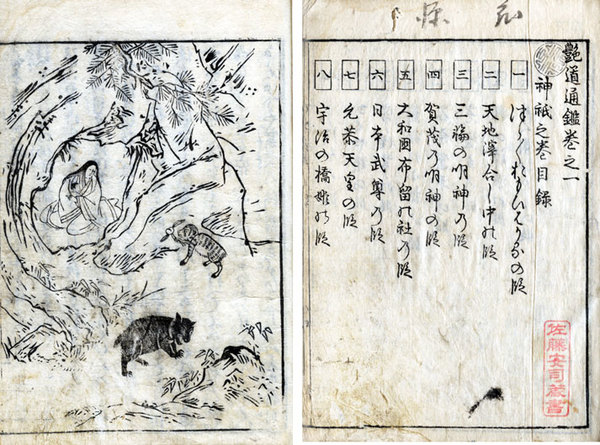 艷道通鑑巻之一
神祇之巻目録
一 の段
二 天地渾合し中の段
三 三輪の明神の段
四 賀茂の明神の段
五 大和國布留の社の段
六 日本武尊の段
七 允恭天皇の段
八 宇治の橋姫の段
佐藤安司蔵書